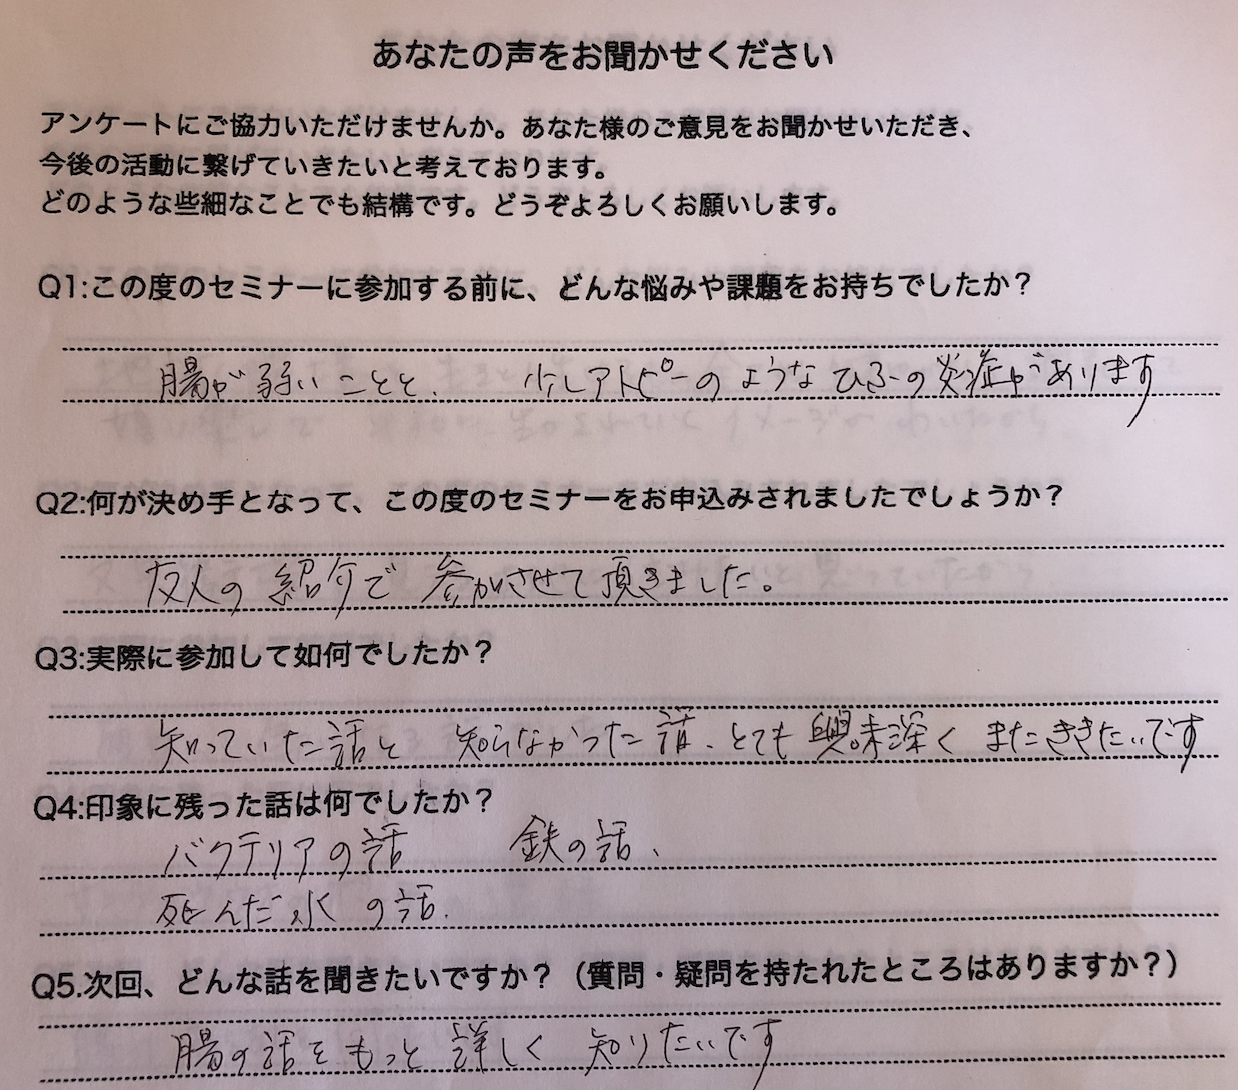 あなたの声をお聞かせください
アンケートにご協力いただけませんか。あなた様のご意見をお聞かせいただき、
今後の活動に繋げていきたいと考えております。
どのような些細なことでも結構です。どうぞよろしくお願いします。
Q1:この度のセミナーに参加する前に、どんな悩みや課題をお持ちでしたか?
腸が弱いことと、少しアトピーのようなひふの炎症があります
Q2:何が決め手となって、この度のセミナーをお申込みされましたでしょうか?
友人の紹介で参加させて頂きました。
Q3:実際に参加して如何でしたか?
知っていた話と 知らなかった話、とても興味深く またききたいです
Q4:印象に残った話は何でしたか?
バクテリアの話 鉄の話、
死んだ水の話.
Q5.次回、どんな話を聞きたいですか?(質問・疑問を持たれたところはありますか?)
腸の話をもっと詳しく 知りたいです